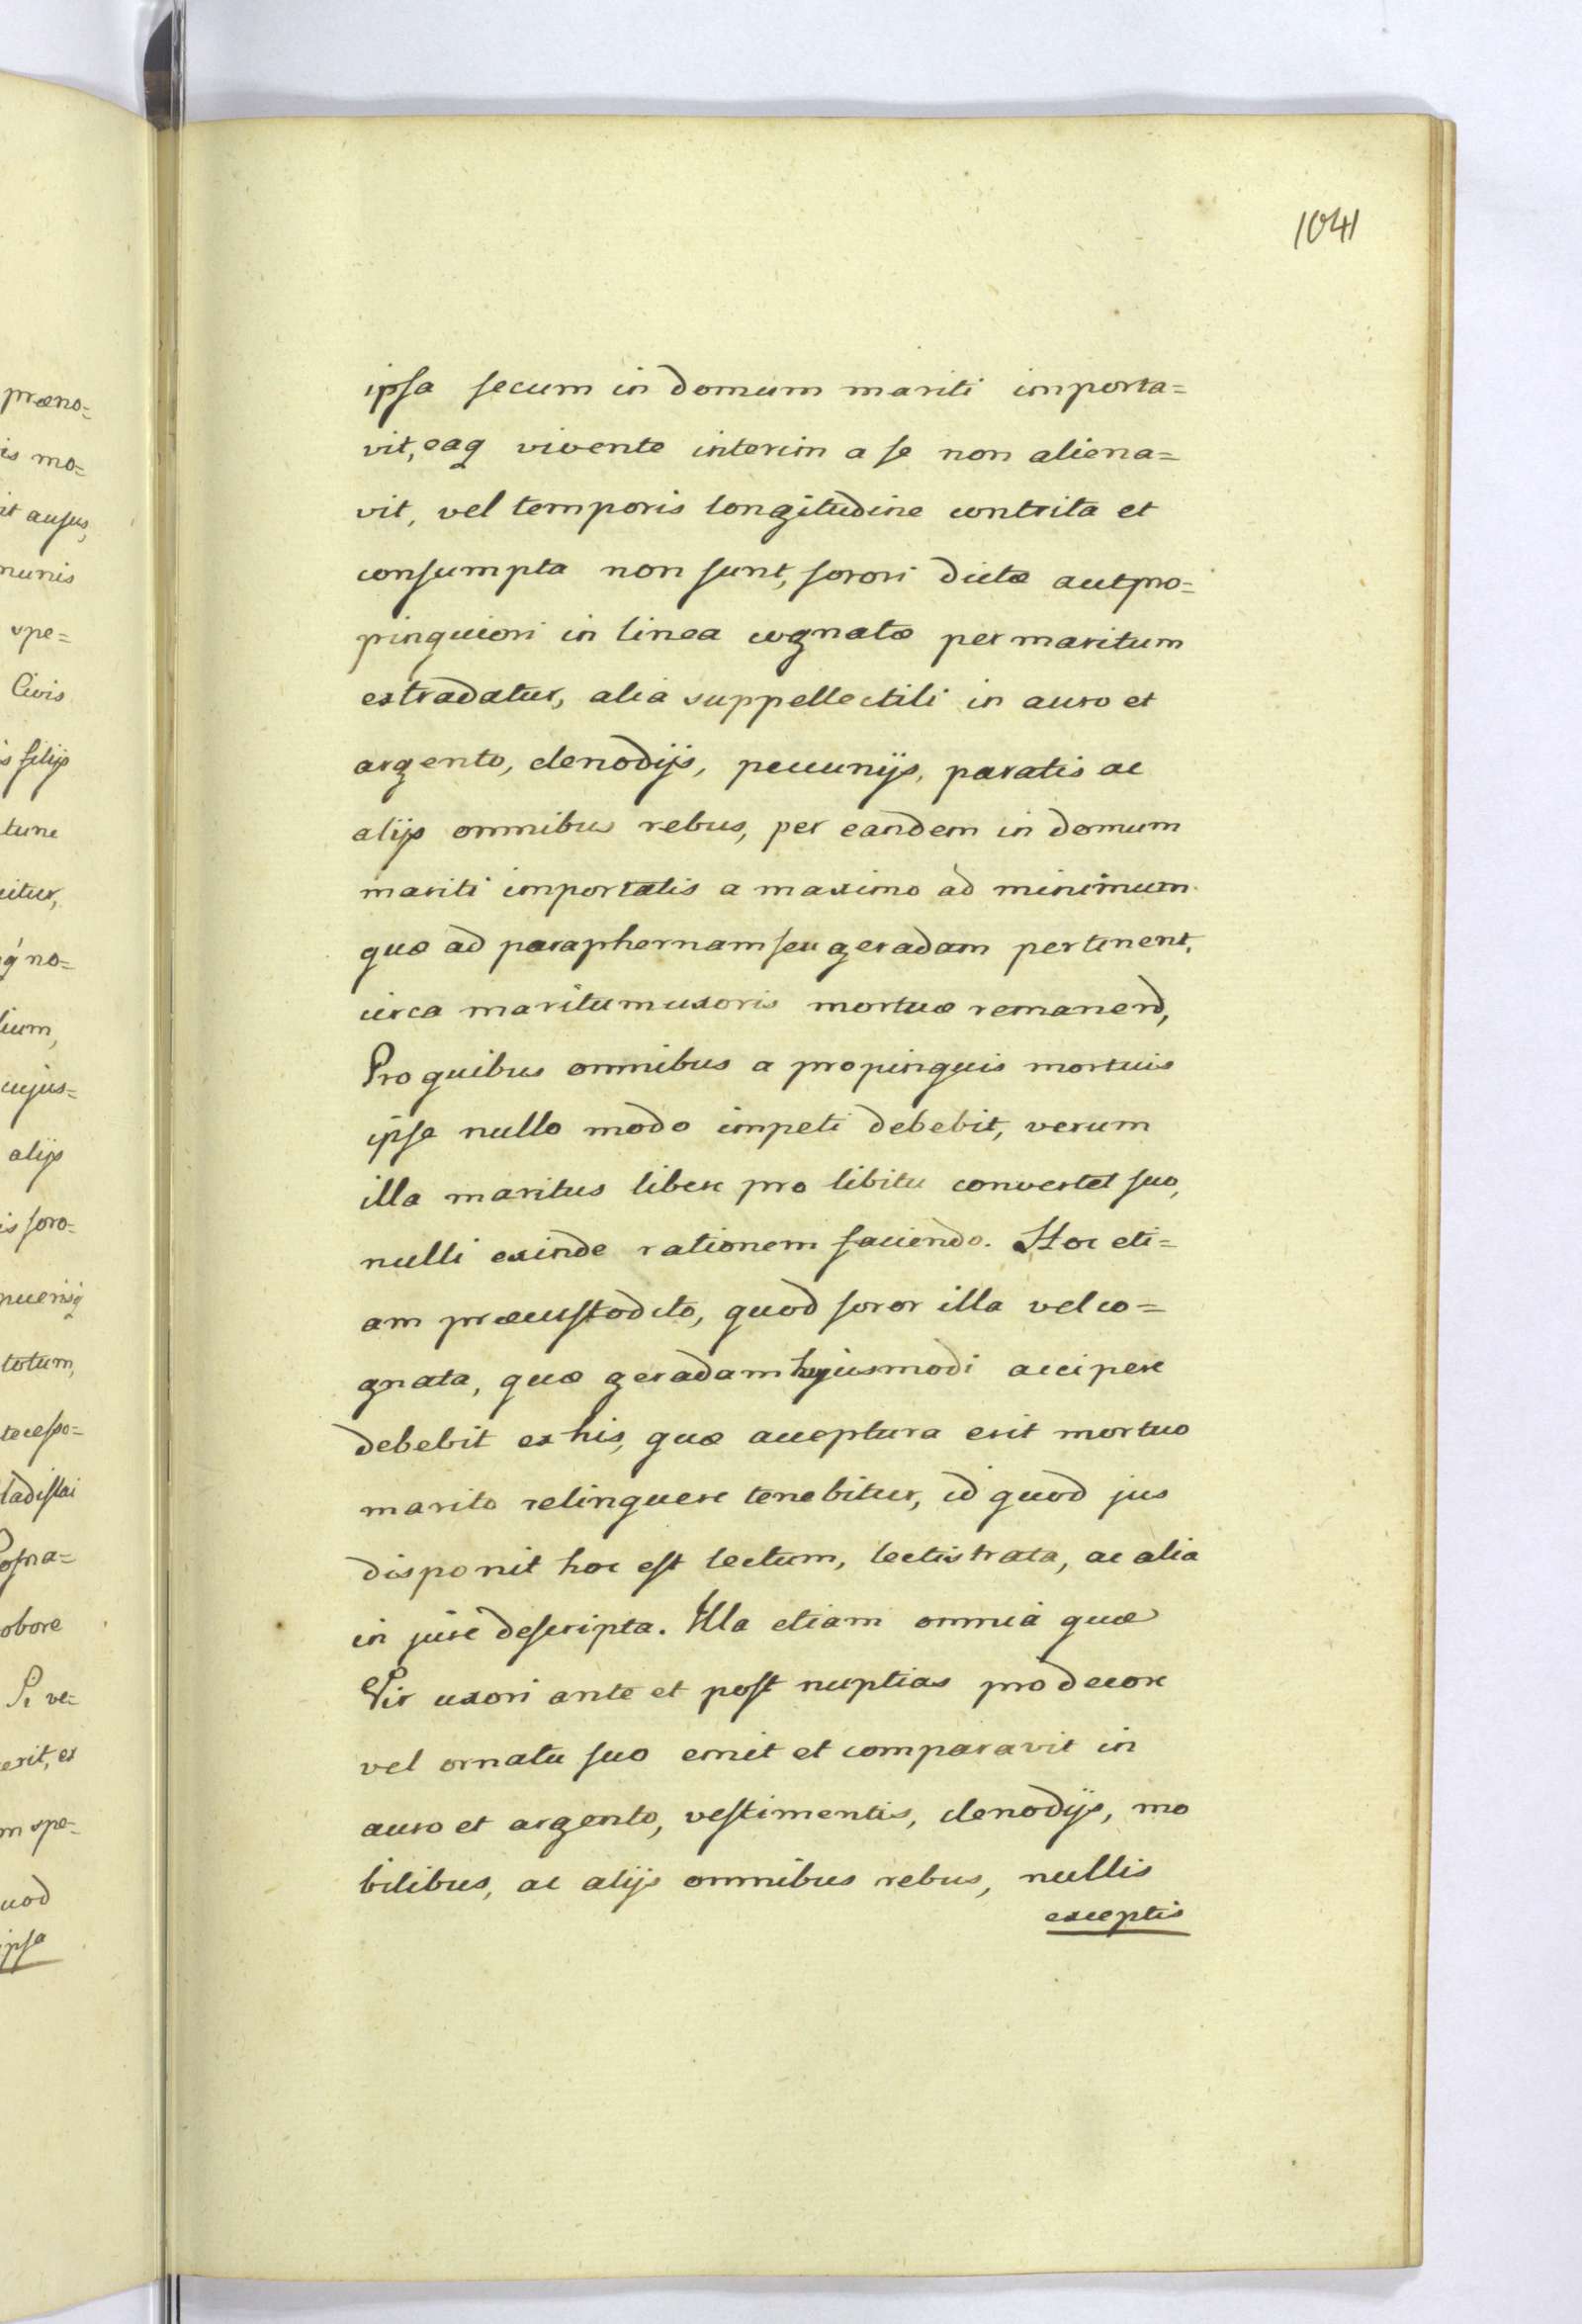 1041
ipsa secum in domum mariti importa=
vit, eaq vivente interim a se non aliena=
vit, vel temporis longitudine contrita et
consumpta non sunt, sorori dictæ aut pro=
pinquiori in linea cognatæ per maritum
extradatur, alia suppellectili in auro et
argento, clenodijs, pecunijs, paratis ac
alijs omnibus rebus, per eandem in domum
mariti importatis a maximo ad minimum
quæ ad paraphernam seu geradam pertinent,
circa maritum uxoris mortuæ remanend,
Pro quibus omnibus a propinquis mortuis
ipse nullo modo impeti debebit, verum
illa maritus libere pro libitu convertet suo,
nulli exinde rationem faciendo. Hoc eti=
am præcustodito, quod soror illa vel co=
gnata, quæ geradam hujusmodi accipere
debebit ex his, quæ acceptura erit mortuo
marito relinquere tenebitur, id quod jus
disponit hoc est lectum, lectistrata, ac alia
in jure descripta. Illa etiam omnia quæ
Vir uxori ante et post nuptias pro decore
vel ornatu suo emit et comparavit in
auro et argento, vestimentis, clenodijs, mo
bilibus, ac alijs omnibus rebus, nullis
exceptis
præno=
is mo=
it ausus,
munis
spe=
Civis
is filijs
tunc
uitur,
q no=
lium,
cujus=
alijs
is soro=
puerisq
totum,
tecesso=
ladislai
Posna=
obore
Si ve=
erit, et
m spe=
uod
ipsa